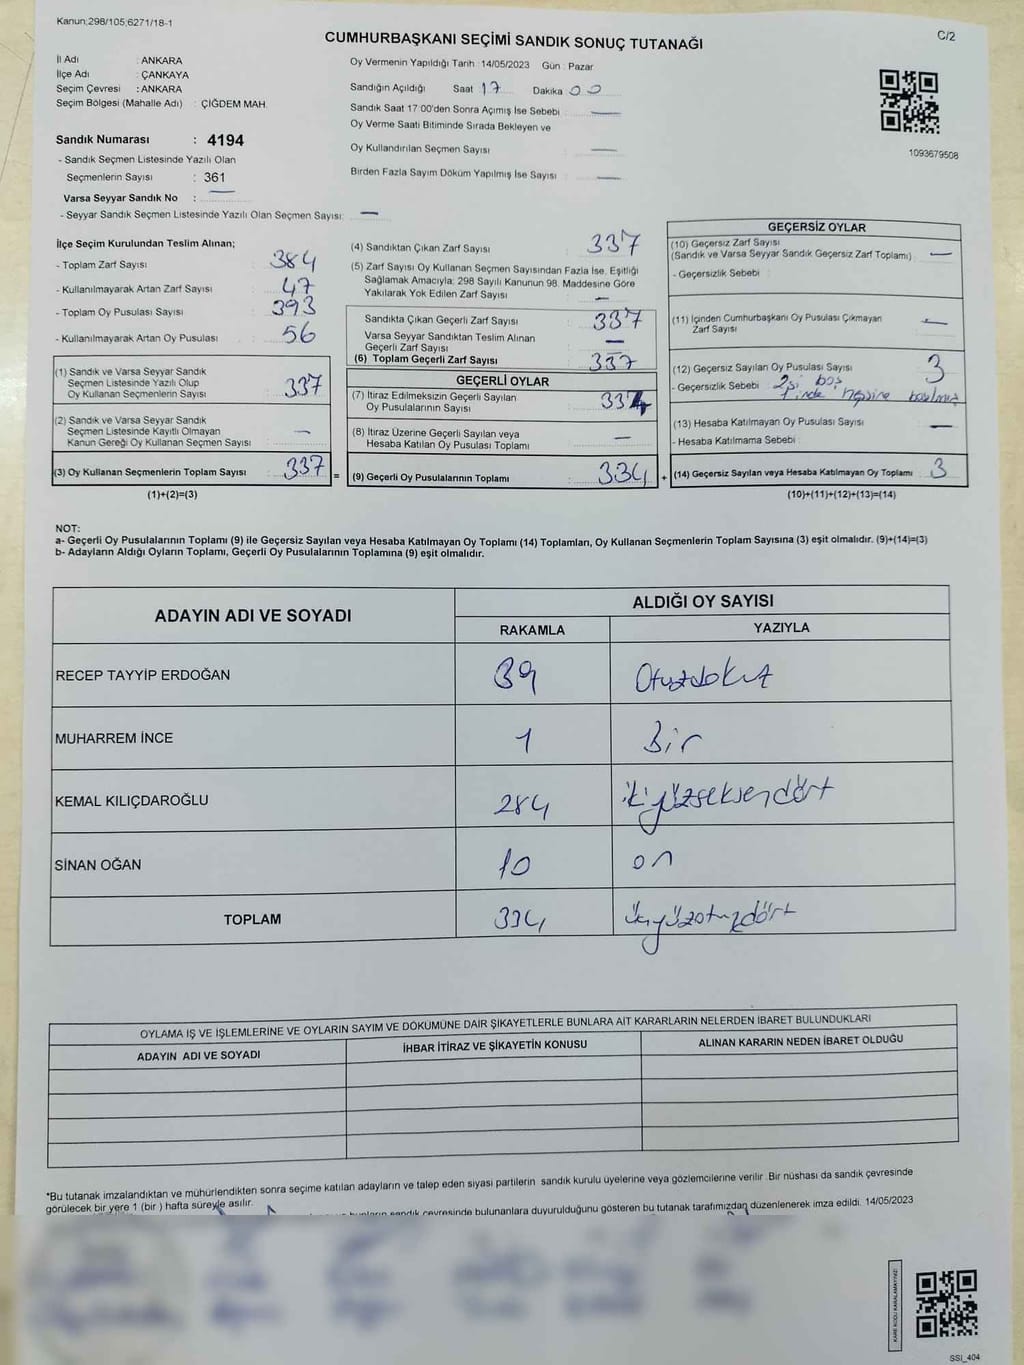 Kanun;298/105;6271/18-1
C/2
CUMHURBAŞKANI SEÇİMİ SANDIK SONUÇ TUTANAĞI
İl Adı : ANKARA
İlçe Adı : ÇANKAYA
Seçim Çevresi : ANKARA
Seçim Bölgesi (Mahalle Adı) : ÇİĞDEM MAH.
Sandık Numarası : 4194
- Sandık Seçmen Listesinde Yazılı Olan
Seçmenlerin Sayısı : 361
Varsa Seyyar Sandık No : —
- Seyyar Sandık Seçmen Listesinde Yazılı Olan Seçmen Sayısı: —
Oy Vermenin Yapıldığı Tarih :14/05/2023 Gün : Pazar
Sandığın Açıldığı Saat 17 Dakika 00
Sandık Saat 17:00'den Sonra Açımış İse Sebebi : —
Oy Verme Saati Bitiminde Sırada Bekleyen ve
Oy Kullandırılan Seçmen Sayısı : —
Birden Fazla Sayım Döküm Yapılmış İse Sayısı : —
1093679508
İlçe Seçim Kurulundan Teslim Alınan;
- Toplam Zarf Sayısı : 384
- Kullanılmayarak Artan Zarf Sayısı : 47
- Toplam Oy Pusulası Sayısı : 393
- Kullanılmayarak Artan Oy Pusulası : 56
(1) Sandık ve Varsa Seyyar Sandık
Seçmen Listesinde Yazılı Olup
Oy Kullanan Seçmenlerin Sayısı : 337
(2) Sandık ve Varsa Seyyar Sandık
Seçmen Listesinde Kayıtlı Olmayan
Kanun Gereği Oy Kullanan Seçmen Sayısı : —
(3) Oy Kullanan Seçmenlerin Toplam Sayısı : 337 =
(1)+(2)=(3)
(4) Sandıktan Çıkan Zarf Sayısı : 337
(5) Zarf Sayısı Oy Kullanan Seçmen Sayısından Fazla İse, Eşitliği
Sağlamak Amacıyla; 298 Sayılı Kanunun 98. Maddesine Göre
Yakılarak Yok Edilen Zarf Sayısı : —
Sandıkta Çıkan Geçerli Zarf Sayısı : 337
Varsa Seyyar Sandıktan Teslim Alınan
Geçerli Zarf Sayısı : —
(6) Toplam Geçerli Zarf Sayısı : 337
GEÇERLİ OYLAR
(7) İtiraz Edilmeksizin Geçerli Sayılan
Oy Pusulalarının Sayısı : 334
(8) İtiraz Üzerine Geçerli Sayılan veya
Hesaba Katılan Oy Pusulası Toplamı : —
(9) Geçerli Oy Pusulalarının Toplamı : 334 +
GEÇERSİZ OYLAR
(10) Geçersiz Zarf Sayısı
(Sandık ve Varsa Seyyar Sandık Geçersiz Zarf Toplamı) : —
- Geçersizlik Sebebi :
(11) İçinden Cumhurbaşkanı Oy Pusulası Çıkmayan
Zarf Sayısı : —
(12) Geçersiz Sayılan Oy Pusulası Sayısı : 3
- Geçersizlik Sebebi : 2si boş
1inde hepsine basılmış
(13) Hesaba Katılmayan Oy Pusulası Sayısı : —
- Hesaba Katılmama Sebebi :
(14) Geçersiz Sayılan veya Hesaba Katılmayan Oy Toplamı : 3
(10)+(11)+(12)+(13)=(14)
NOT:
a- Geçerli Oy Pusulalarının Toplamı (9) ile Geçersiz Sayılan veya Hesaba Katılmayan Oy Toplamı (14) Toplamları, Oy Kullanan Seçmenlerin Toplam Sayısına (3) eşit olmalıdır. (9)+(14)=(3)
b- Adayların Aldığı Oyların Toplamı, Geçerli Oy Pusulalarının Toplamına (9) eşit olmalıdır.
ADAYIN ADI VE SOYADI
ALDIĞI OY SAYISI
RAKAMLA YAZIYLA
RECEP TAYYİP ERDOĞAN 39 Otuzdokuz
MUHARREM İNCE 1 Bir
KEMAL KILIÇDAROĞLU 284 ikiyüzseksendört
SİNAN OĞAN 10 on
TOPLAM 334 üçyüzotuzdört
OYLAMA İŞ VE İŞLEMLERİNE VE OYLARIN SAYIM VE DÖKÜMÜNE DAİR ŞİKAYETLERLE BUNLARA AİT KARARLARIN NELERDEN İBARET BULUNDUKLARI
ADAYIN ADI VE SOYADI İHBAR İTİRAZ VE ŞİKAYETİN KONUSU ALINAN KARARIN NEDEN İBARET OLDUĞU
*Bu tutanak imzalandıktan ve mühürlendikten sonra seçime katılan adayların ve talep eden siyasi partilerin sandık kurulu üyelerine veya gözlemcilerine verilir. Bir nüshası da sandık çevresinde
görülecek bir yere 1 (bir ) hafta süreyle asılır.
sandık çevresinde bulunanlara duyurulduğunu gösteren bu tutanak tarafımızdan düzenlenerek imza edildi. 14/05/2023
KARE KODU KARALAMAYINIZ!
SSI_404